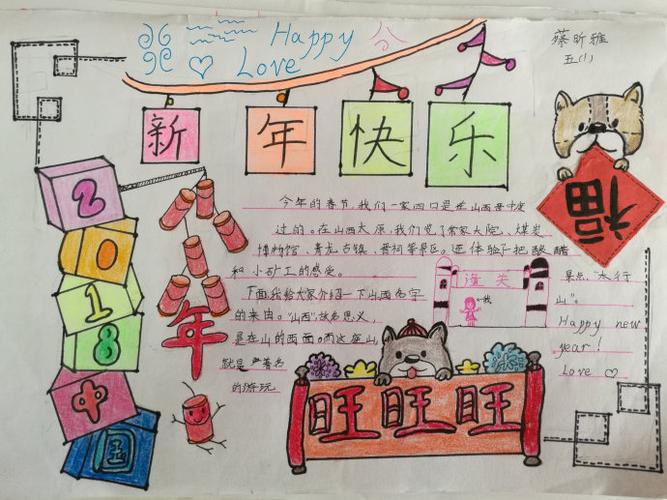 Happy
Love
蔡昕雅
五(1)
新年快乐
2018中国
年
福
今年的春节,我们一家四口是在山西晋中度
过的。在山西太原,我们览了常家大院、煤炭
博物馆、青龙古镇、晋祠等景区。还体验了把酿醋
和小矿工的感受。
下面我给大家介绍一下山西名字
的来由。"山西"故名思义,
是在山的西面。而这座山
就是著名
的游玩
景点"太行
山"。
Happy new
year!
Love
潼关
我
旺旺旺